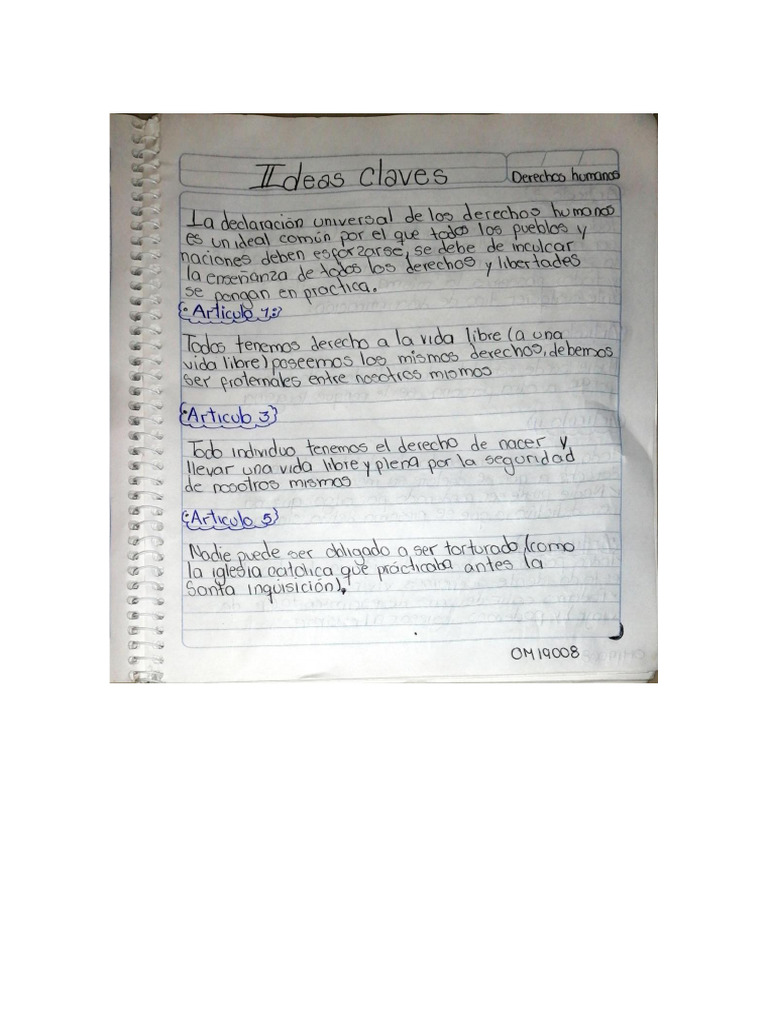 Ideas Claves
Derechos humanos
La declaración universal de los derechos humanos
es un ideal común por el que todos los pueblos y
naciones deben esforzarse, se debe de inculcar
la enseñanza de todos los derechos y libertades
se pongan en practica.
Articulo 1:
Todos tenemos derecho a la vida libre (a una
vida libre) poseemos los mismos derechos, debemos
ser fraternales entre nosotros mismos
Articulo 3
Todo individuo tenemos el derecho de nacer y
llevar una vida libre y plena por la seguridad
de nosotros mismos
Articulo 5
Nadie puede ser obligado a ser torturado (como
la iglesia católica que prácticaba antes la
Santa inquisición).
OM19008